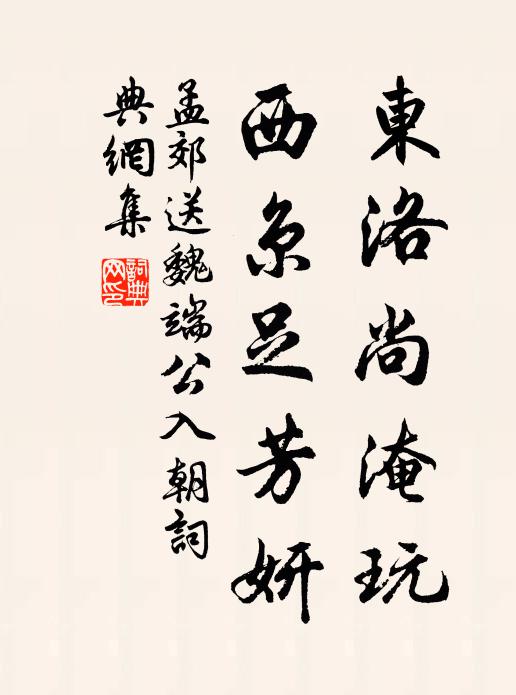 東洛尚淹玩
西京足芳妍
孟郊送魏端公入朝詞
典網集
詞典网印